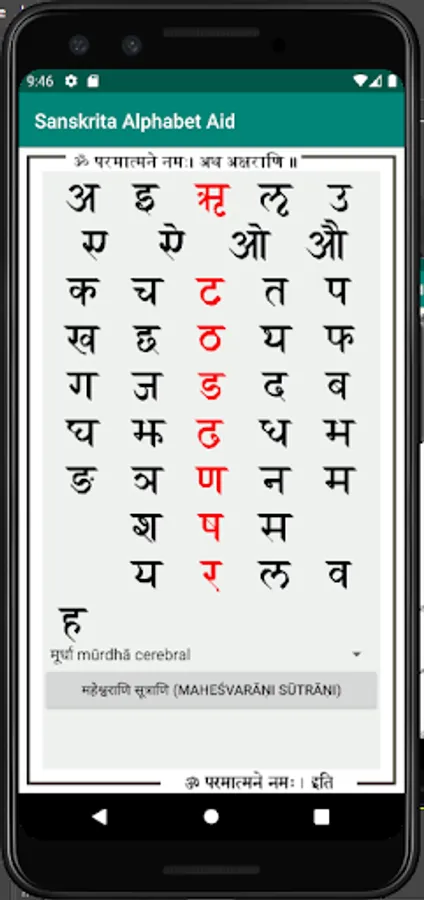 9:46
Sanskrita Alphabet Aid
ॐ परमात्मने नमः। अथ अक्षराणि ॥
अ इ ऋ ऌ उ
ए ऐ ओ औ
क च ट त प
ख छ ठ थ फ
ग ज ड द ब
घ झ ढ ध भ
ङ ञ ण न म
श ष स
य र ल व
ह
मूर्धा mūrdhā cerebral
महेश्वराणि सूत्राणि (MAHEŚVARĀṆI SŪTRĀṆI)
ॐ परमात्मने नमः। इति